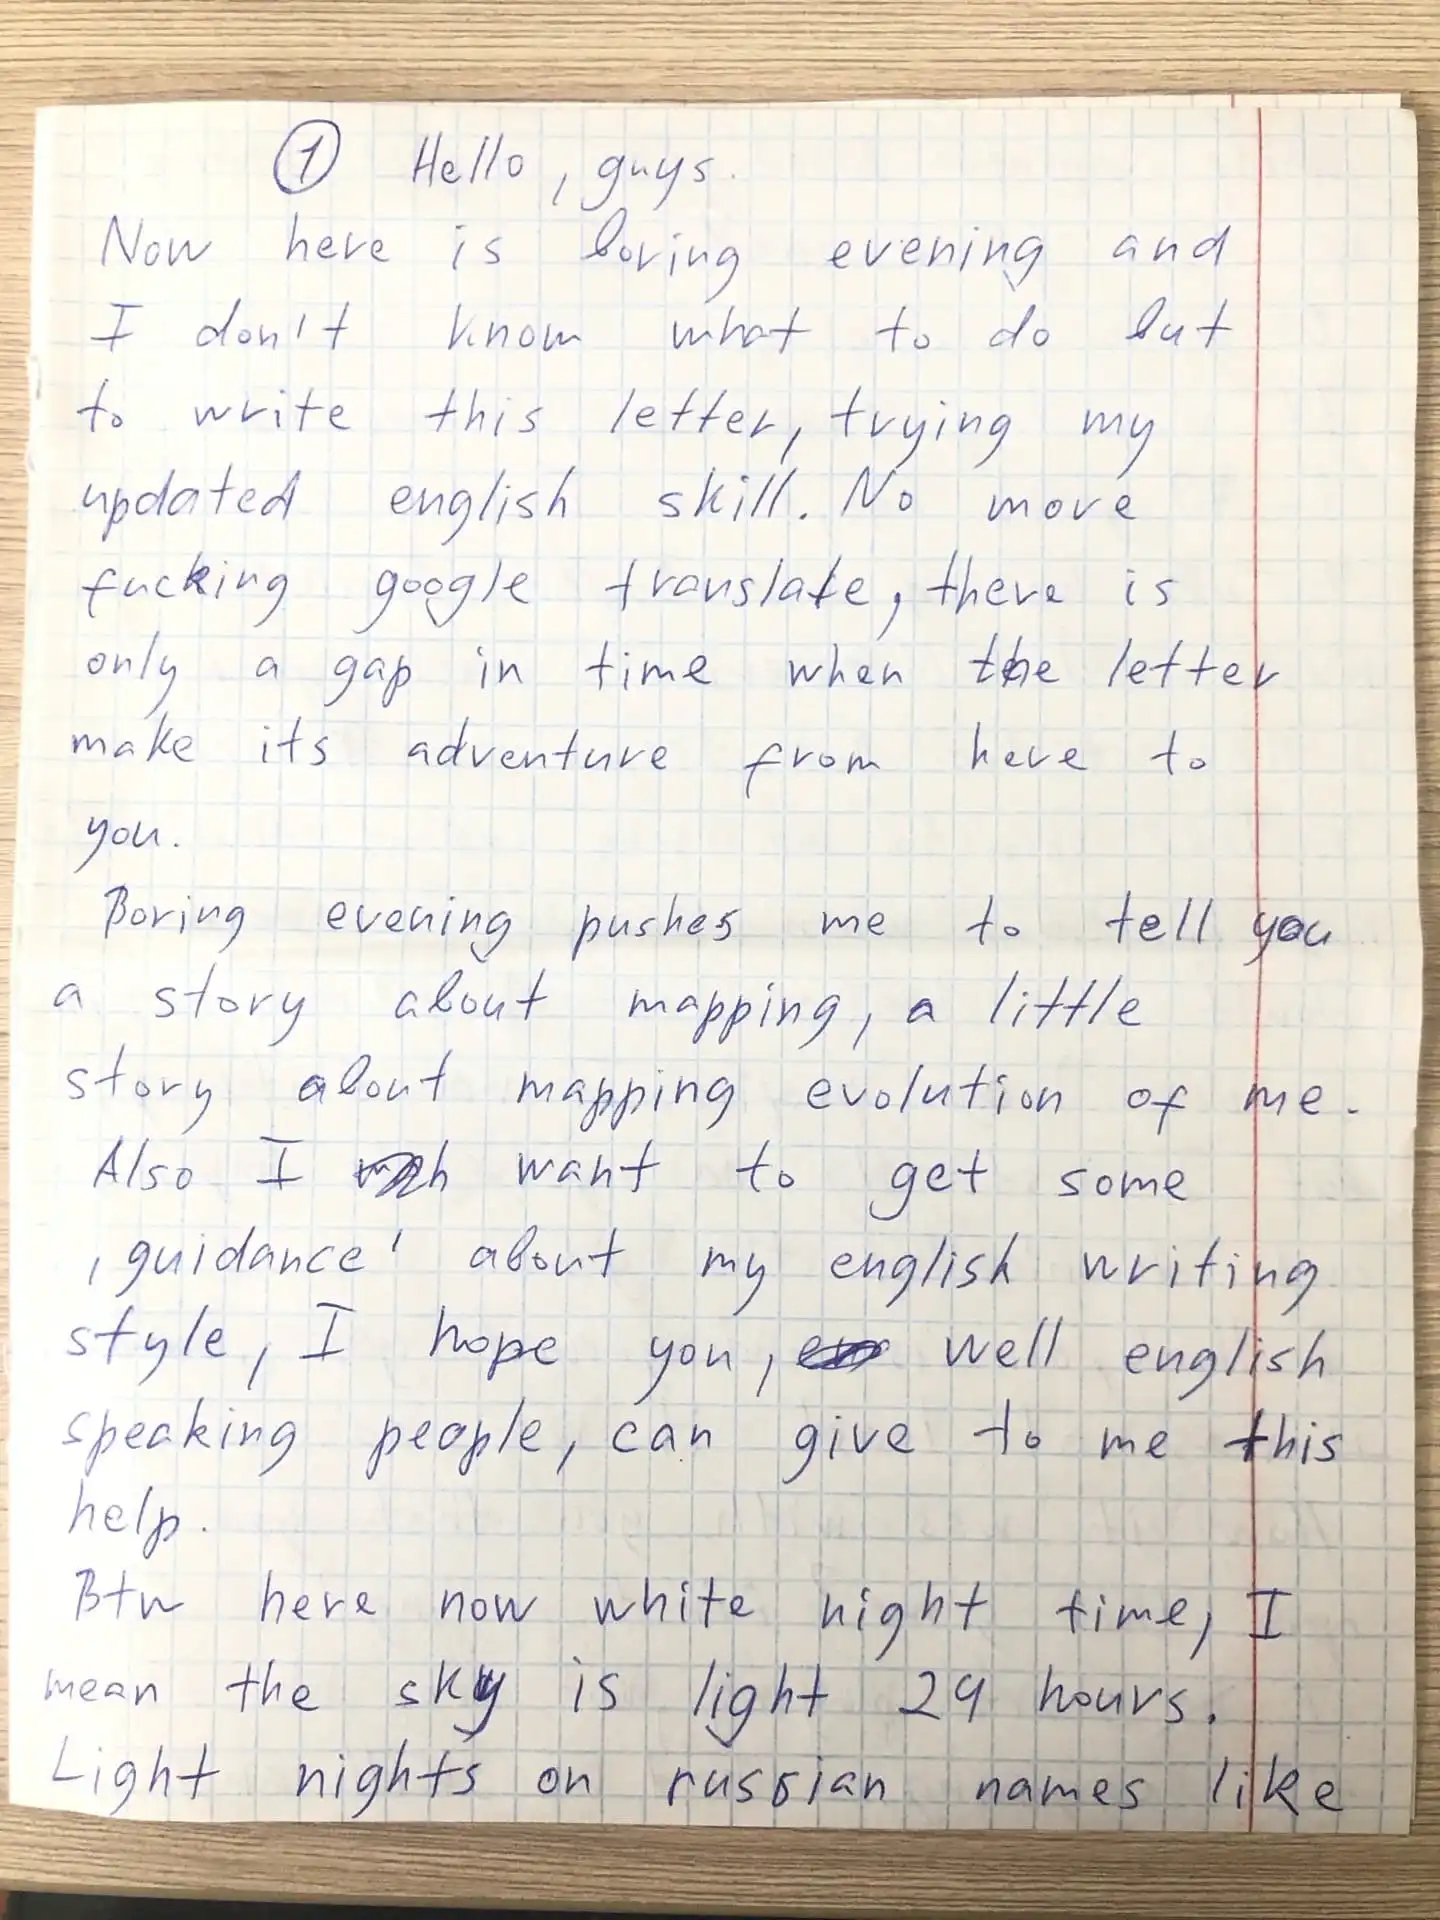 ① Hello, guys.
Now here is boring evening and
I don't know what to do but
to write this letter, trying my
updated english skill. No more
fucking google translate, there is
only a gap in time when the letter
make its adventure from here to
you.
Boring evening pushes me to tell you
a story about mapping, a little
story about mapping evolution of me.
Also I want to get some
‚guidance' about my english writing
style, I hope you, well english
speaking people, can give to me this
help.
Btw here now white night time, I
mean the sky is light 24 hours.
Light nights on russian names like